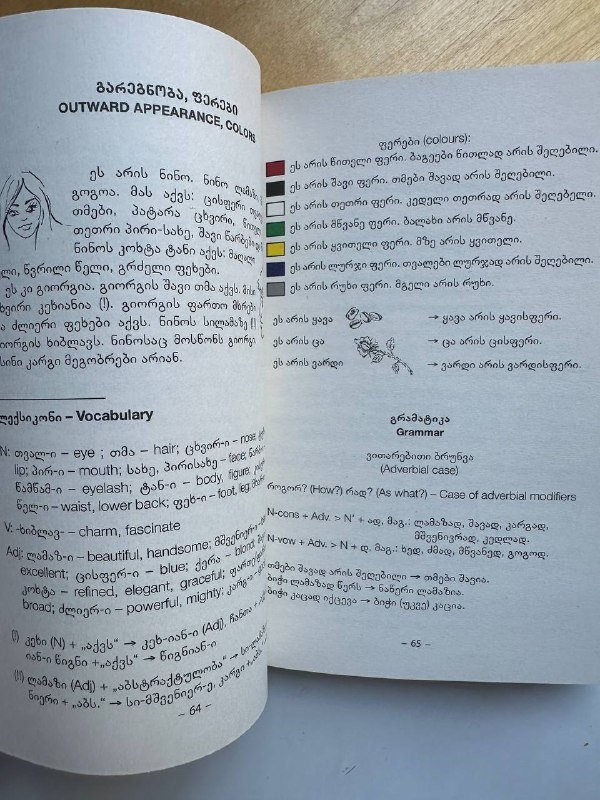 გარეგნობა, ფერები
OUTWARD APPEARANCE, COLORS
ეს არის ნინო. ნინო ლამაზი
გოგოა. მას აქვს: ცისფერი
თმები, პატარა ცხვირი,
თეთრი პირი-სახე, შავი
ნინოს კოხტა ტანი აქვს: მაღალი
წვრილი წელი, გრძელი ფეხები.
ეს კი გიორგია. გიორგის შავი თმა აქვს.
კეხიანია (!). გიორგის ფართო მხრები
ძლიერი ფეხები აქვს. ნინოს სილამაზე
ხიბლავს. ნინოსაც მოსწონს გიორგი
კარგი მეგობრები არიან.
ლექსიკონი – Vocabulary
N: თვალ-ი – eye ; თმა – hair; ცხვირ-ი – nose,
lip; პირ-ი – mouth; სახე, პირისახე – face;
წამწამ-ი – eyelash; ტან-ი – body, figure;
წელ-ი – waist, lower back; ფეხ-ი – foot, leg;
V: -ხიბლავ- – charm, fascinate
Adj: ლამაზ-ი – beautiful, handsome;
excellent; ცისფერ-ი – blue; ქერა – blond;
კოხტა – refined, elegant, graceful;
broad; ძლიერ-ი – powerful, mighty; კარგ-ი –
(!) კეხი (N) + „აქვს“ → კეხ-იან-ი (Adj),
იან-ი წიგნი + „აქვს“ → წიგნიან-ი
(!!) ლამაზი (Adj) + „აბსტრაქტულობა“ →
ნიერი + „აბს.“ → სი-მშვენიერ-ე, კარგი +
– 64 –
ფერები (colours):
ეს არის წითელი ფერი. ბაგეები წითლად არის შეღებილი.
ეს არის შავი ფერი. თმები შავად არის შეღებილი.
ეს არის თეთრი ფერი. კედელი თეთრად არის შეღებილი.
ეს არის მწვანე ფერი. ბალახი არის მწვანე.
ეს არის ყვითელი ფერი. მზე არის ყვითელი.
ეს არის ლურჯი ფერი. თვალები ლურჯად არის შეღებილი.
ეს არის რუხი ფერი. მგელი არის რუხი.
ეს არის ყავა → ყავა არის ყავისფერი.
ეს არის ცა → ცა არის ცისფერი.
ეს არის ვარდი → ვარდი არის ვარდისფერი.
გრამატიკა
Grammar
ვითარებითი ბრუნვა
(Adverbial case)
როგორ? (How?) რად? (As what?) – Case of adverbial modifiers
N-cons + Adv. > N' + ად, მაგ.: ლამაზად, შავად, კარგად,
მშვენივრად, კედლად.
N-vow + Adv. > N + დ, მაგ.: ხედ, ძმად, მწვანედ, გოგოდ.
თმები შავად არის შეღებილი → თმები შავია.
ბიჭი ლამაზად წერს → ნაწერი ლამაზია.
ბიჭი კაცად იქცევა → ბიჭი (უკვე) კაცია.
– 65 –